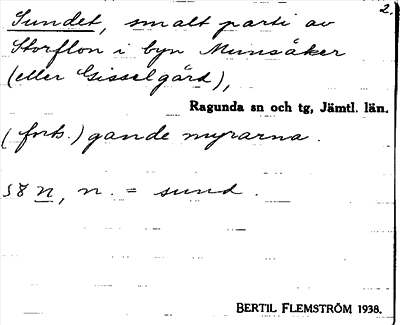 2.
Sundet, smalt parti av
Storflon i byn Munsåker
(eller Gisselgård),
Ragunda sn och tg, Jämtl. län.
(forts.) gande myrarna.
n, n. = sund.
BERTIL FLEMSTRÖM 1938.